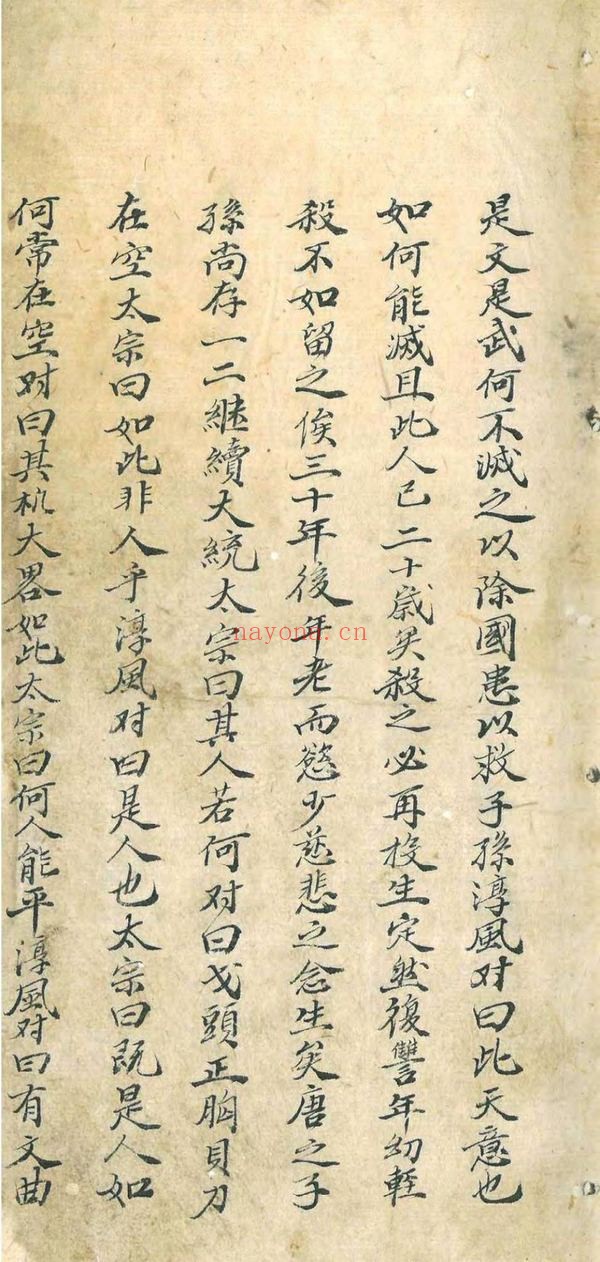 是文是武何不滅之以除國患以救子孫淳風对曰此天意也
如何能滅且此人已二十歲矣殺之必再投生定然復讐年幼輕
殺不如留之俟三十年後年老而慾少慈悲之念生矣唐之子
孫尚存一二継續大統太宗曰其人若何对曰戈頭正胸貝刀
在空太宗曰如此非人乎淳風对曰是人也太宗曰既是人如
何常在空对曰其机大畧如此太宗曰何人能平淳風对曰有文曲
nayona.cn